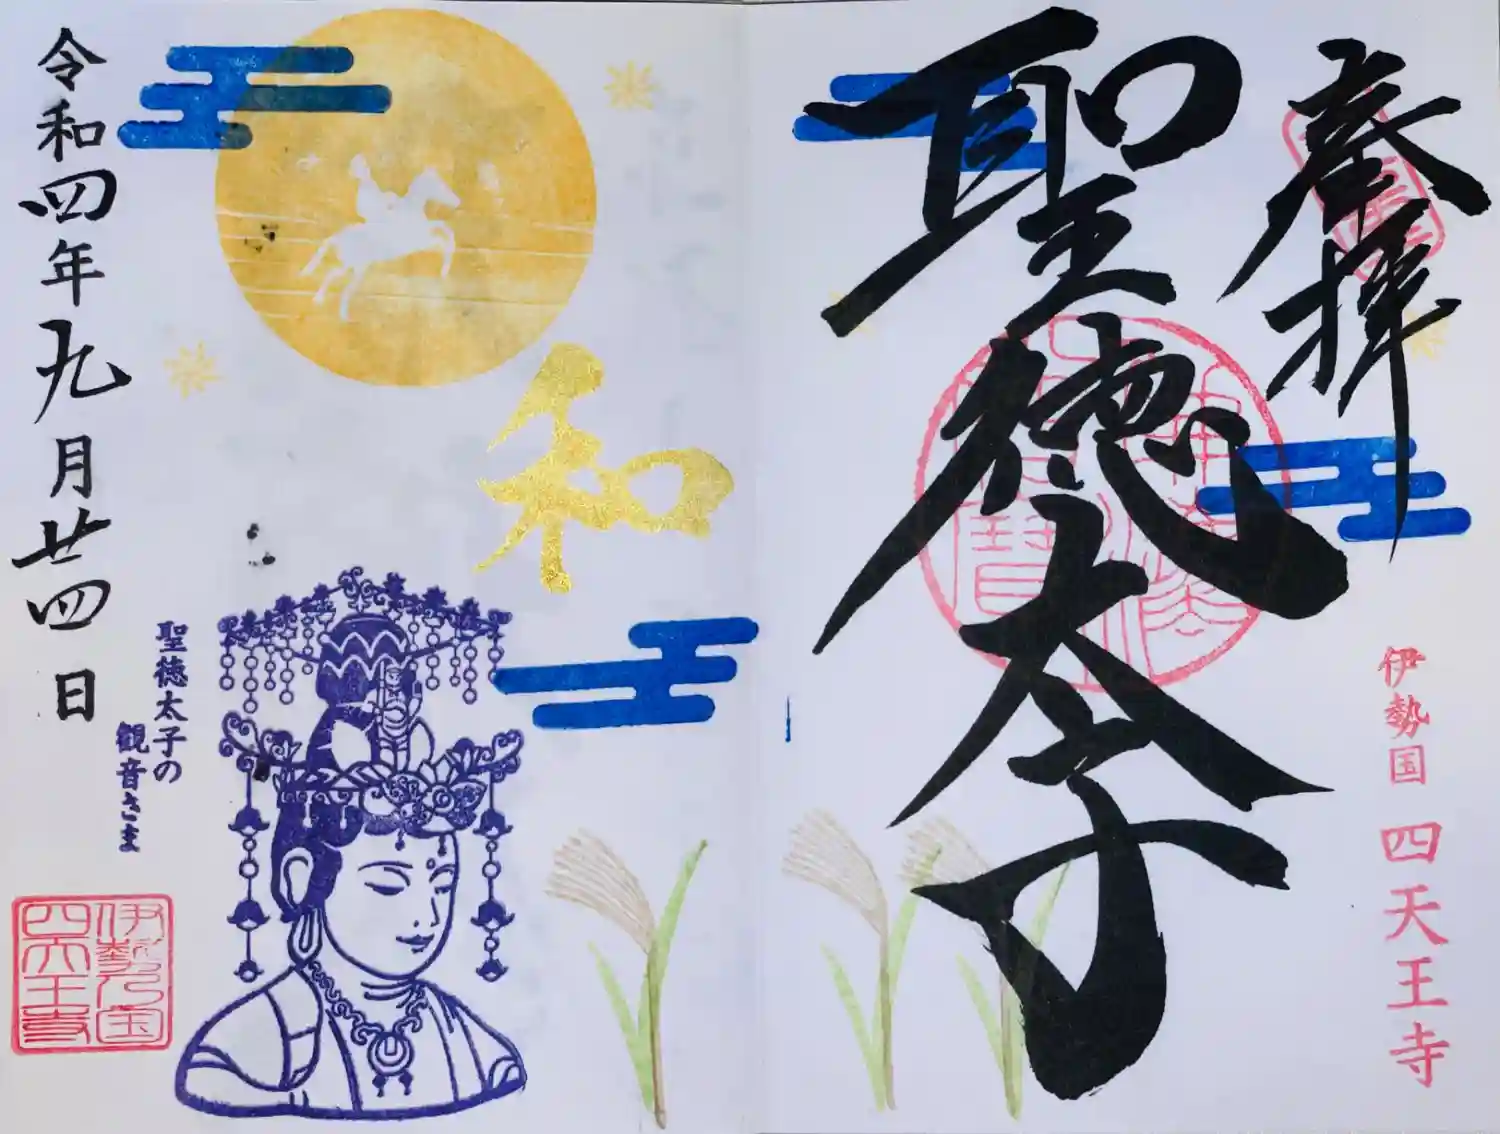 奉拝
聖徳太子
伊勢国 四天王寺
和
聖徳太子の
観音さま
令和四年九月廿四日
伊勢乃国
四天王寺